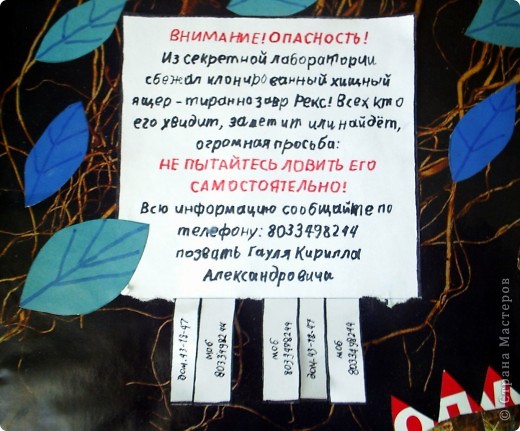 ВНИМАНИЕ! ОПАСНОСТЬ!
Из секретной лаборатории
сбежал клонированный хищный
ящер - тираннозавр Рекс! Всех кто
его увидит, заметит или найдёт,
огромная просьба:
НЕ ПЫТАЙТЕСЬ ЛОВИТЬ ЕГО
САМОСТОЯТЕЛЬНО!
Всю информацию сообщайте по
телефону: 8033498244
позвать Гауля Кирилла
Александровича
дом. 43-18-47
моб
8033498244
моб
8033498244
дом. 43-18-47
моб
8033498244
ОПА
© Страна Мастеров